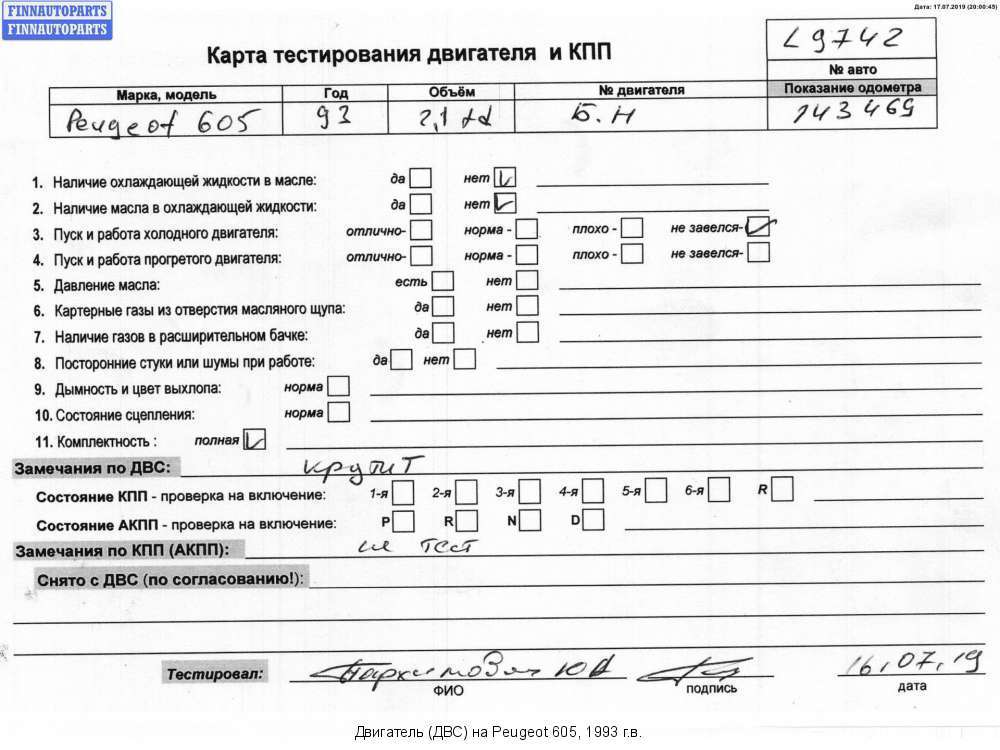 FINNAUTOPARTS
FINNAUTOPARTS
Дата: 17.07.2019 (20:00:45)
Карта тестирования двигателя и КПП
L9742
№ авто
Марка, модель Год Объём № двигателя Показание одометра
Peugeot 605 93 2,1 Б.Н 143469
1. Наличие охлаждающей жидкости в масле: да нет
2. Наличие масла в охлаждающей жидкости: да нет
3. Пуск и работа холодного двигателя: отлично- норма - плохо - не завелся-
4. Пуск и работа прогретого двигателя: отлично- норма - плохо - не завелся-
5. Давление масла: есть нет
6. Картерные газы из отверстия масляного щупа: да нет
7. Наличие газов в расширительном бачке: да нет
8. Посторонние стуки или шумы при работе: да нет
9. Дымность и цвет выхлопа: норма
10. Состояние сцепления: норма
11. Комплектность : полная
Замечания по ДВС: крутит
Состояние КПП - проверка на включение: 1-я 2-я 3-я 4-я 5-я 6-я R
Состояние АКПП - проверка на включение: P R N D
Замечания по КПП (АКПП): не тест
Снято с ДВС (по согласованию!):
Тестировал: 16.07.19
ФИО подпись дата
Двигатель (ДВС) на Peugeot 605, 1993 г.в.